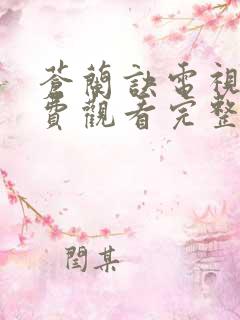 蒼蘭訣電視
費觀看完整
閆某